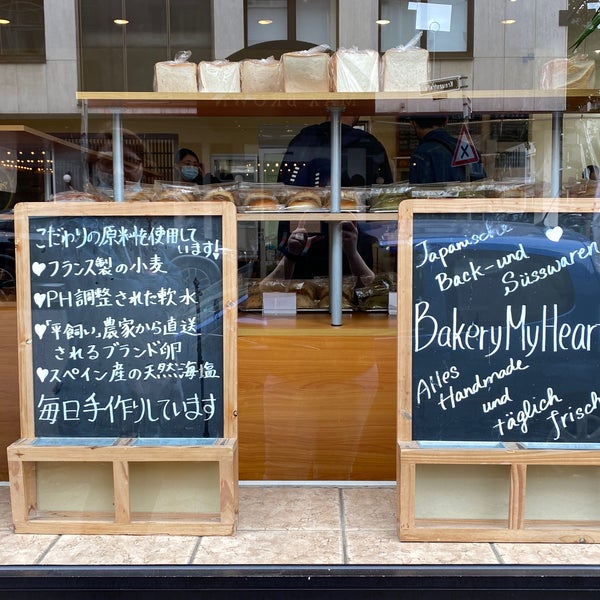 こだわりの原料を使用して
います!
♥フランス製の小麦
♥PH調整された軟水
♥「平飼い」農家から直送
されるブランド卵
♥スペイン産の天然海塩
毎日手作りしています
Japanische
Back-und
Süsswaren
BakeryMyHear
Alles
Handmade
und
täglich
frisch